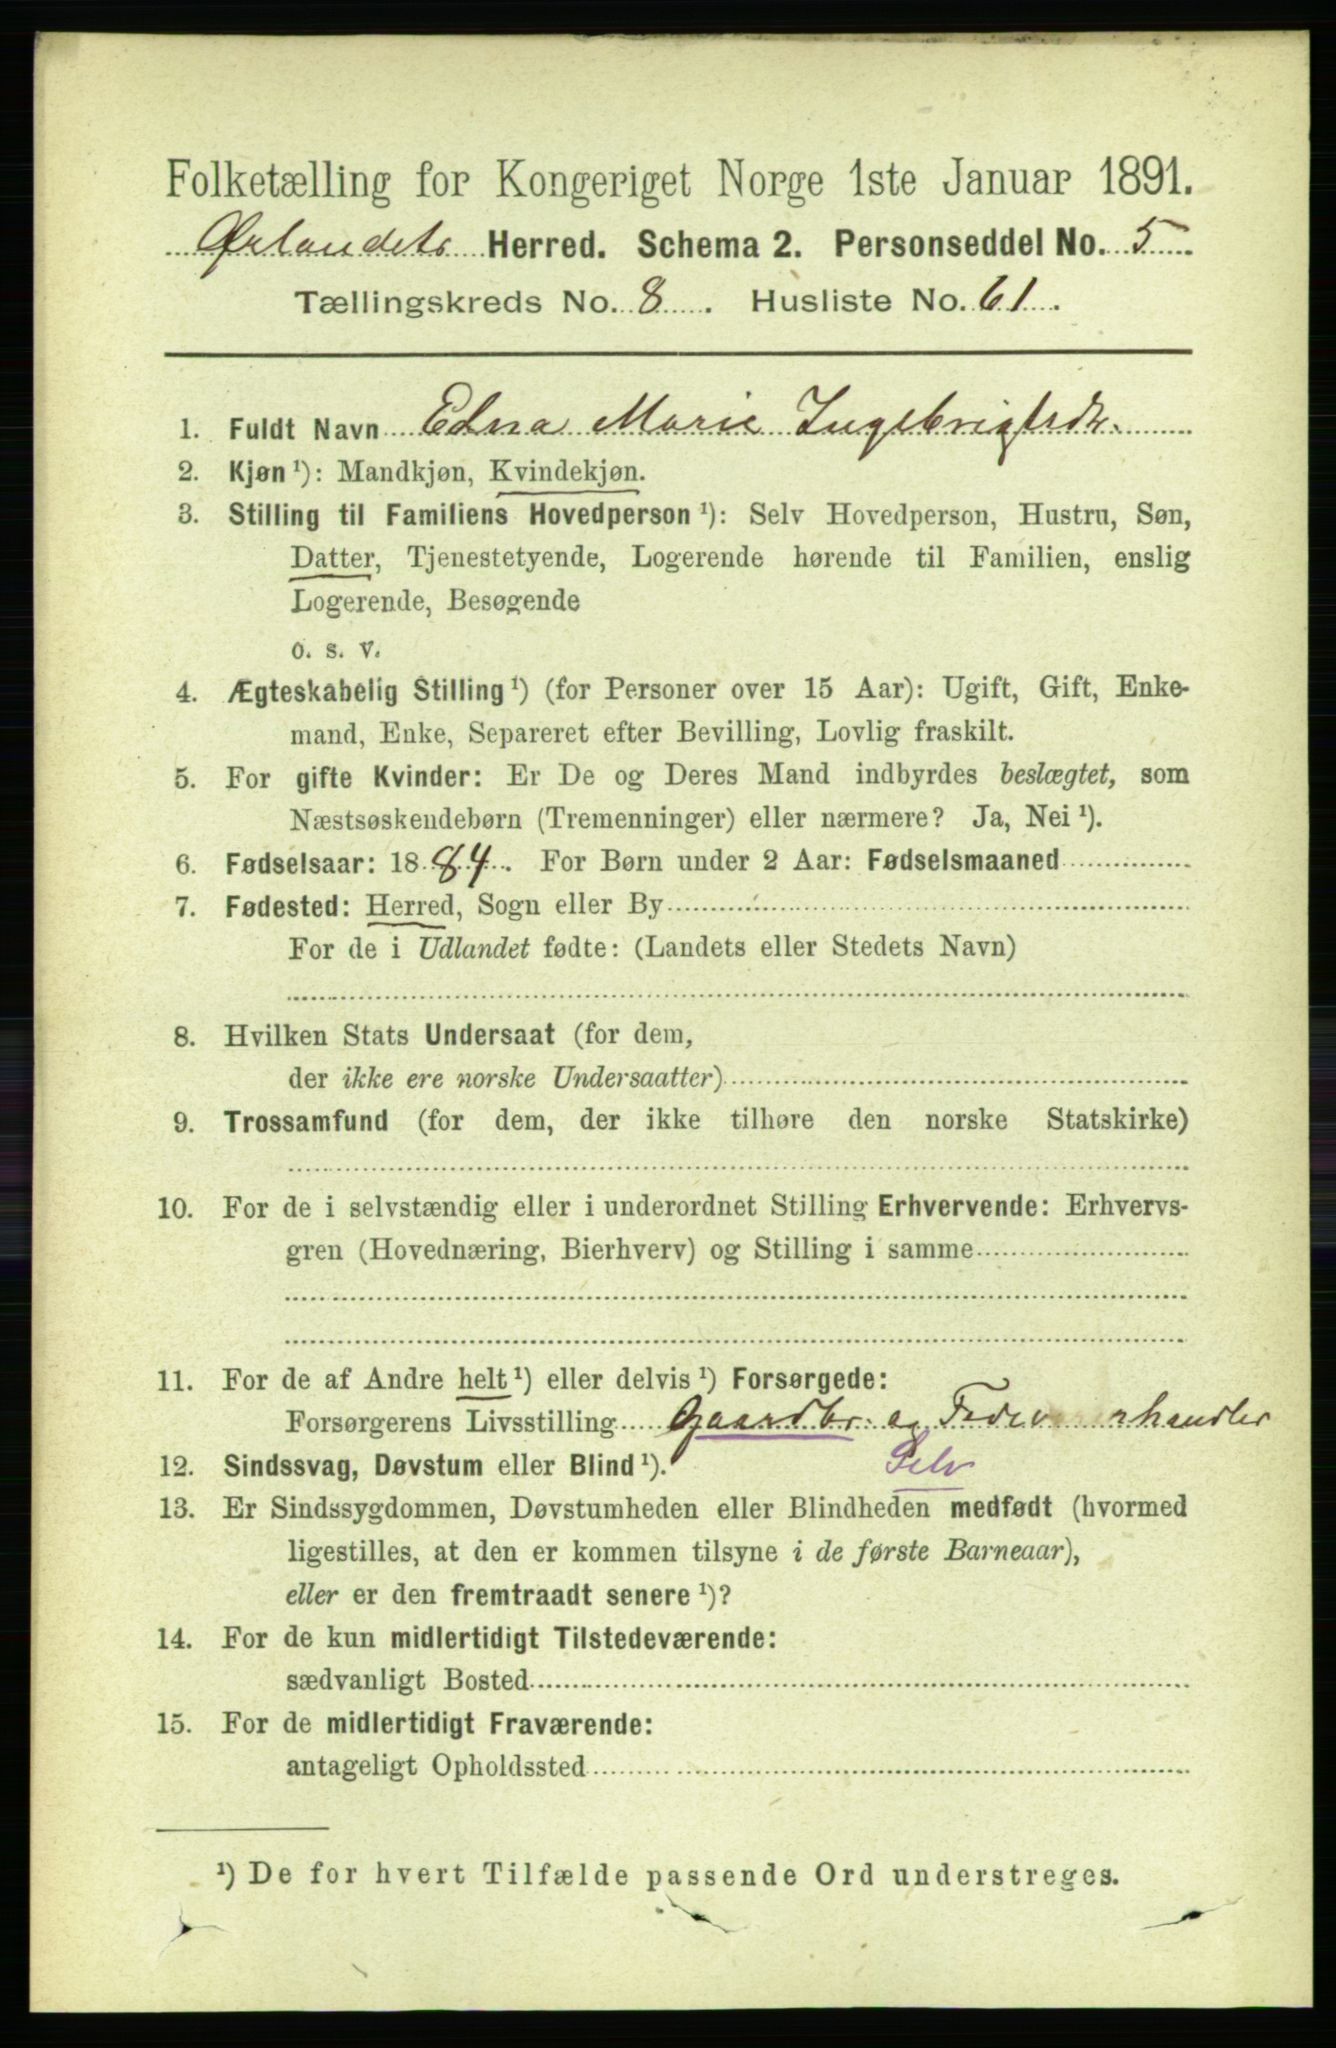 Folketælling for Kongeriget Norge 1ste Januar 1891.
Ørlandets Herred. Schema 2. Personseddel No. 5
Tællingskreds No. 8. Husliste No. 61.
1. Fuldt Navn Edna Marie Ingebrigtsdr.
2. Kjøn ¹): Mandkjøn, Kvindekjøn.
3. Stilling til Familiens Hovedperson ¹): Selv Hovedperson, Hustru, Søn,
Datter, Tjenestetyende, Logerende hørende til Familien, enslig
Logerende, Besøgende
o. s. v.
4. Ægteskabelig Stilling ¹) (for Personer over 15 Aar): Ugift, Gift, Enke-
mand, Enke, Separeret efter Bevilling, Lovlig fraskilt.
5. For gifte Kvinder: Er De og Deres Mand indbyrdes beslægtet, som
Næstsøskendebørn (Tremenninger) eller nærmere? Ja, Nei ¹).
6. Fødselsaar: 1884. For Børn under 2 Aar: Fødselsmaaned
7. Fødested: Herred, Sogn eller By
For de i Udlandet fødte: (Landets eller Stedets Navn)
8. Hvilken Stats Undersaat (for dem,
der ikke ere norske Undersaatter)
9. Trossamfund (for dem, der ikke tilhøre den norske Statskirke)
10. For de i selvstændig eller i underordnet Stilling Erhvervende: Erhvervs-
gren (Hovednæring, Bierhverv) og Stilling i samme
11. For de af Andre helt ¹) eller delvis ¹) Forsørgede:
Forsørgerens Livsstilling Gaardbr. og Fedevarerhandler
12. Sindssvag, Døvstum eller Blind ¹). Selv
13. Er Sindssygdommen, Døvstumheden eller Blindheden medfødt (hvormed
ligestilles, at den er kommen tilsyne i de første Barneaar),
eller er den fremtraadt senere ¹)?
14. For de kun midlertidigt Tilstedeværende:
sædvanligt Bosted
15. For de midlertidigt Fraværende:
antageligt Opholdssted
¹) De for hvert Tilfælde passende Ord understreges.